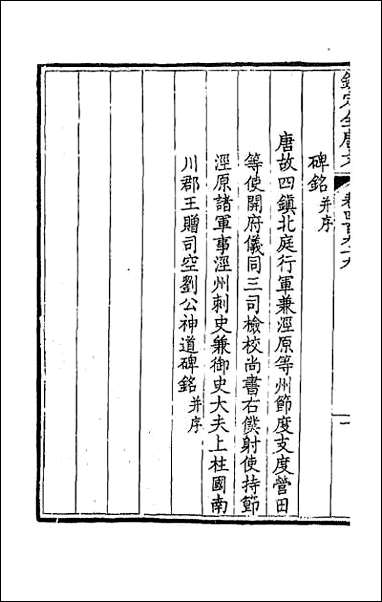 欽定全唐文
卷四百九十九
一
碑銘并序
唐故四鎮北庭行軍兼涇原等州節度支度營田
等使開府儀同三司檢校尚書右僕射使持節
涇原諸軍事涇州刺史兼御史大夫上柱國南
川郡王贈司空劉公神道碑銘并序